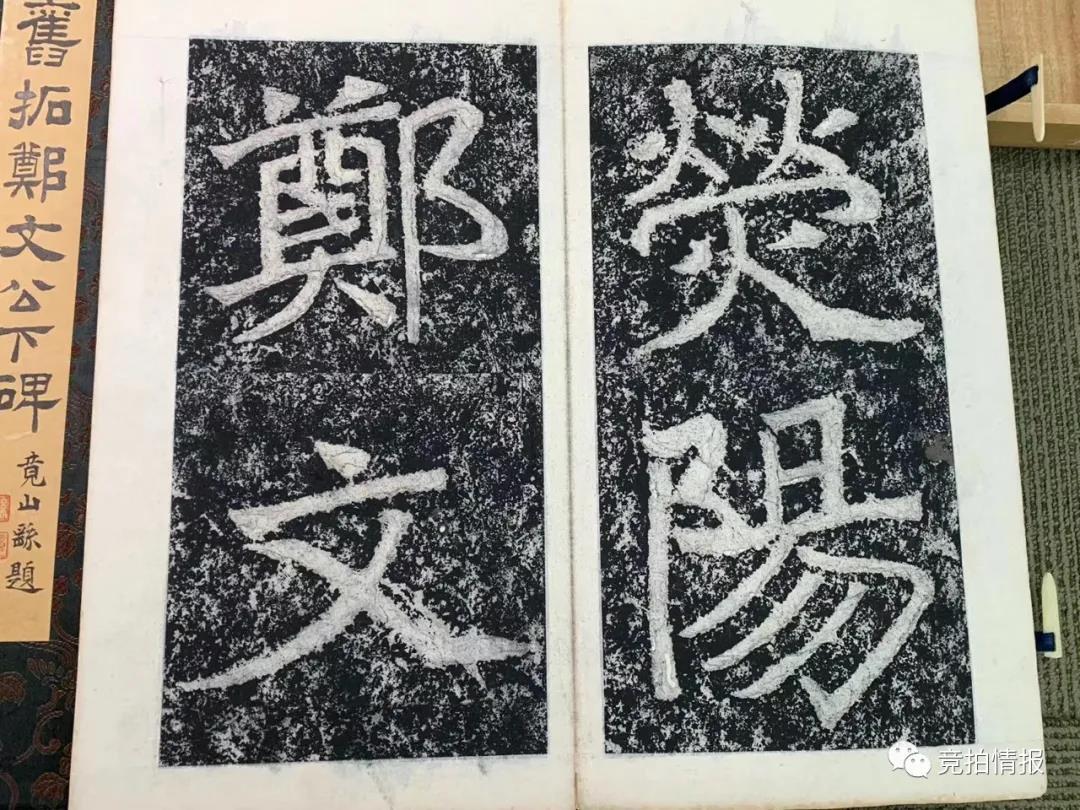 熒陽
鄭文
舊拓鄭文公下碑
竟山繇題
竞拍情报